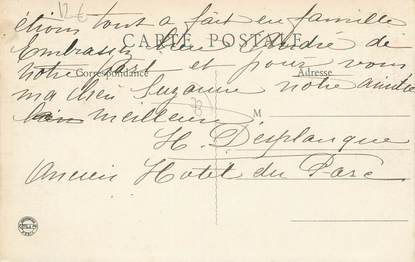 12 €
étions tout à fait en famille
CARTE POSTALE
Embrassez bien André de
notre part et pour vous
Correspondance
Adresse
ma chère Suzanne notre amitié
meilleure
M
H. Desplanque
Ancien Hotel du Parc